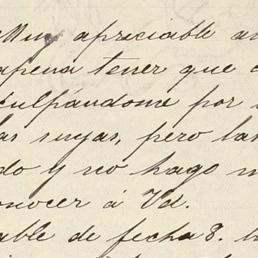 Muy apreciable
apena tener que
culpándome por
las suyas, pero las
do y no hago
onocer á Vd.
able de fecha 8.